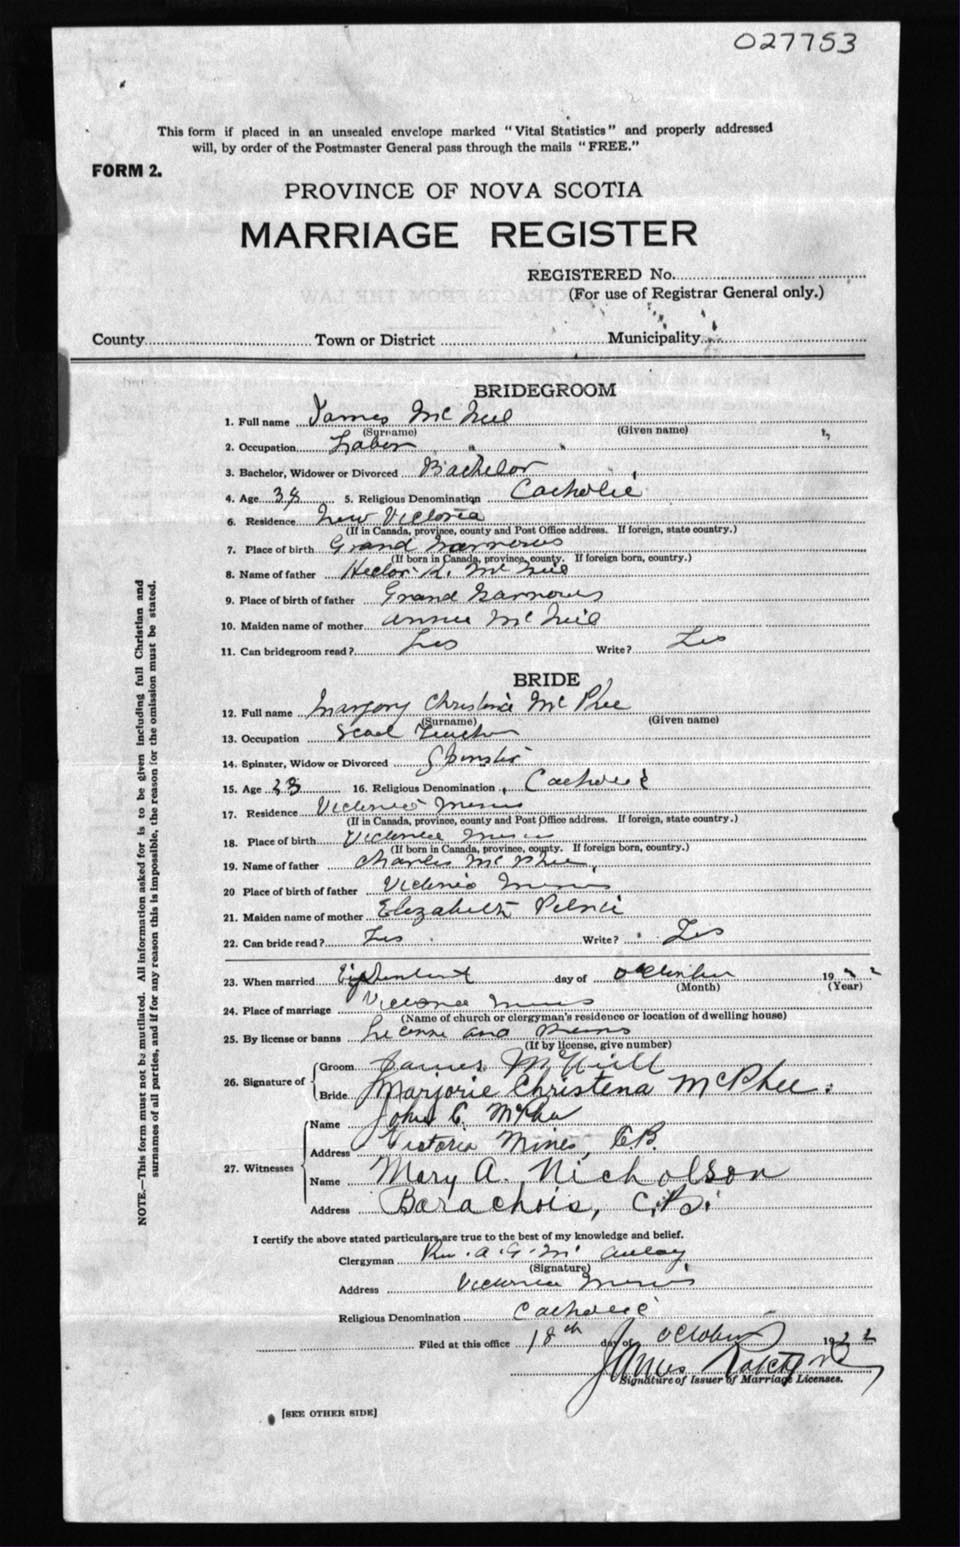 027753
This form if placed in an unsealed envelope marked "Vital Statistics" and properly addressed
will, by order of the Postmaster General pass through the mails "FREE."
FORM 2.
PROVINCE OF NOVA SCOTIA
MARRIAGE REGISTER
REGISTERED No.
(For use of Registrar General only.)
County Town or District Municipality
BRIDEGROOM
1. Full name James McNeil
(Surname) (Given name)
2. Occupation Labor
3. Bachelor, Widower or Divorced Bachelor
4. Age 38 5. Religious Denomination Catholic
6. Residence New Victoria
(If in Canada, province, county and Post Office address. If foreign, state country.)
7. Place of birth Grand Narrows
(If born in Canada, province, county. If foreign born, country.)
8. Name of father Hector McNeil
9. Place of birth of father Grand Narrows
10. Maiden name of mother Annie McNeil
11. Can bridegroom read? Yes Write? Yes
BRIDE
12. Full name Marjory Christina McPhee
(Surname) (Given name)
13. Occupation Teacher
14. Spinster, Widow or Divorced Spinster
15. Age 33 16. Religious Denomination Catholic
17. Residence Victoria Mines
(If in Canada, province, county and Post Office address. If foreign, state country.)
18. Place of birth Victoria Mines
(If born in Canada, province, county. If foreign born, country.)
19. Name of father Charles McPhee
20 Place of birth of father Victoria Mines
21. Maiden name of mother Elizabeth
22. Can bride read? Yes Write? Yes
23. When married day of October 1922
(Month) (Year)
24. Place of marriage Victoria Mines
(Name of church or clergyman's residence or location of dwelling house)
25. By license or banns License and Banns
(If by license, give number)
26. Signature of Groom James McNeill
Bride Marjorie Christena McPhee.
27. Witnesses Name John C. McPhee
Address Victoria Mines, C.B.
Name Mary A. Nicholson
Address Barachois, C.B.
I certify the above stated particulars are true to the best of my knowledge and belief.
Clergyman Rev. A. G. McAulay
(Signature)
Address Victoria Mines
Religious Denomination Catholic
Filed at this office 18th day of October 1922
James
Signature of Issuer of Marriage Licenses.
[SEE OTHER SIDE]
NOTE.—This form must not be mutilated. All information asked for is to be given including full Christian and
surnames of all parties, and if for any reason this is impossible, the reason for the omission must be stated.